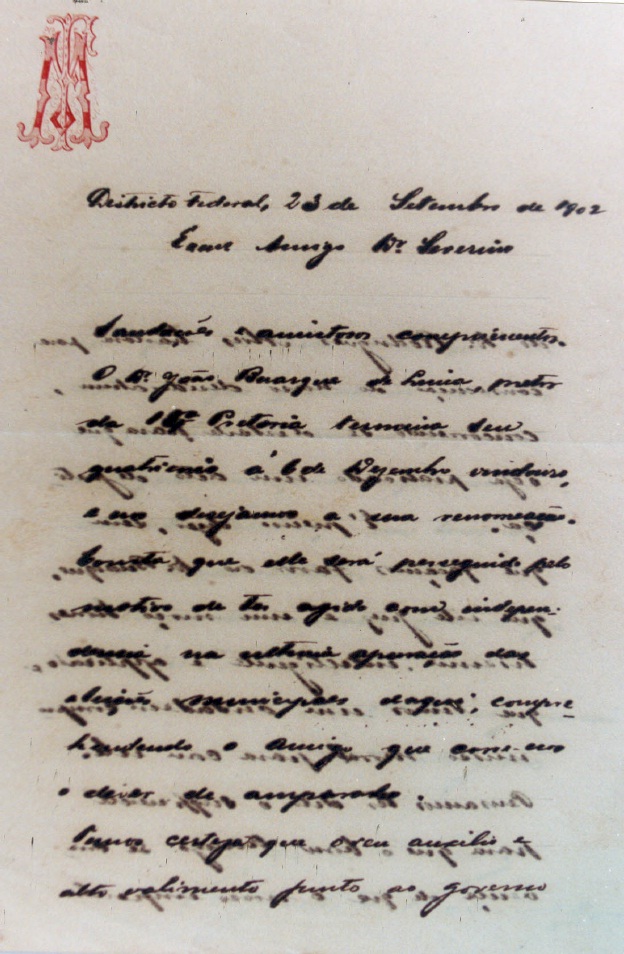 Districto Federal, 23 de Setembro de 1902
Amigo Dr. Severino
Saudações e amistosos comprimentos
O Dr. João Buarque de Lima pretor
da Pretoria termina seu
quatrienio á 6 de Dezembro vindouro,
e nos desejamos a sua renomeação.
Consta que elle será perseguido pelo
motivo de ter agido com indepen-
dencia na ultima apuração das
eleições municipaes daqui; compre-
hendendo o Amigo que corre-nos
o dever de amparal-o.
Temos certeza que o seu auxilio e
alto valimento junto ao governo